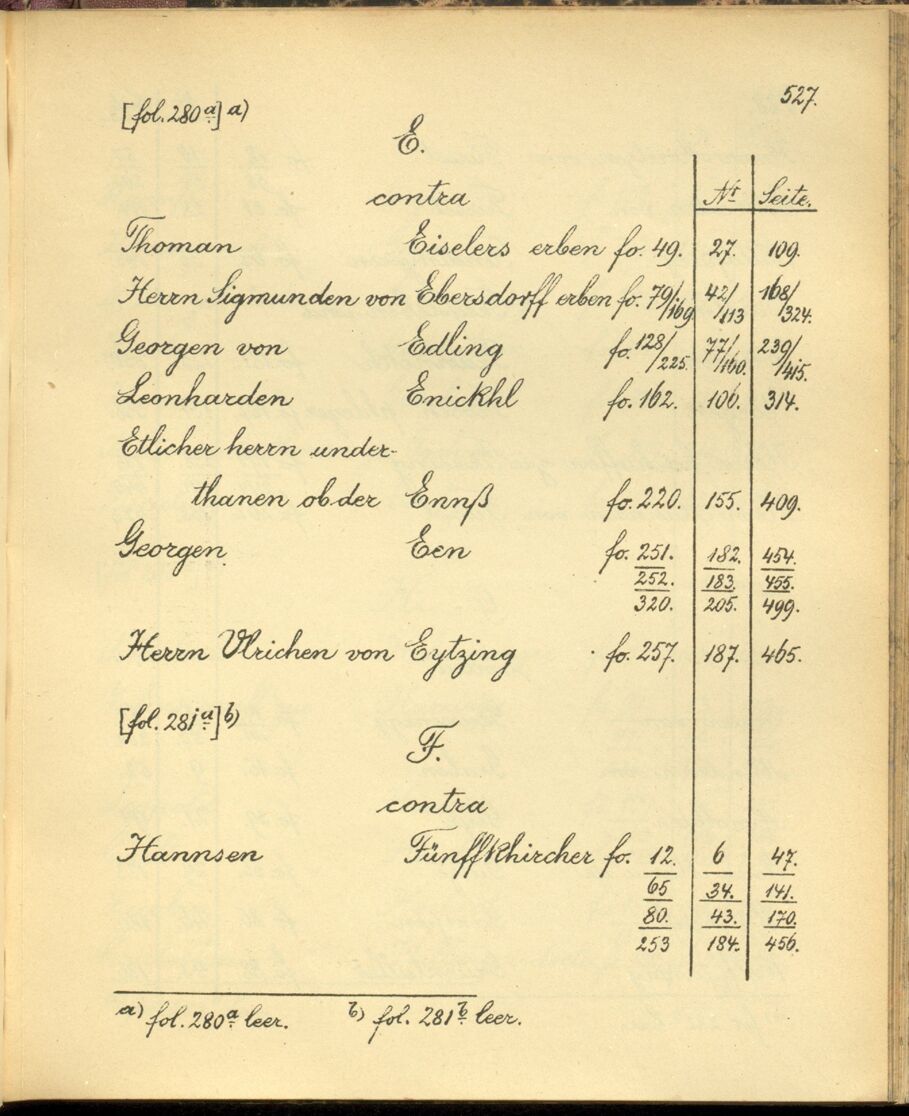 527.
[fol. 280 a] a)
E.
contra Nr Seite.
Thoman Eiselers erben fo. 49. 27. 109.
Herrn Sigmunden von Ebersdorff erben fo. 79/169 42/113 168/324.
Georgen von Edling fo. 128/225. 77/160. 239/415.
Leonharden Enickhl fo. 162. 106. 314.
Etlicher herrn under-
thanen ob der Ennß fo. 220. 155. 409.
Georgen Een fo. 251. 182. 454.
252. 183. 455.
320. 205. 499.
Herrn Vlrichen von Eytzing fo. 257. 187. 465.
[fol. 281 a] b)
F.
contra
Hannsen Fünffkhircher fo. 12. 6 47.
65 34. 141.
80. 43. 170.
253 184. 456.
a) fol. 280 a leer. b) fol. 281 b leer.